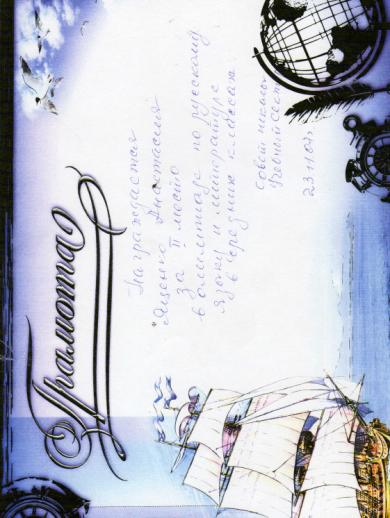 Грамота
Награждается
Яценко Анастасия
за II место
в олимпиаде по русскому
языку и литературе
в середних классах.
Совет школы
Учебный сект
23.11.07.